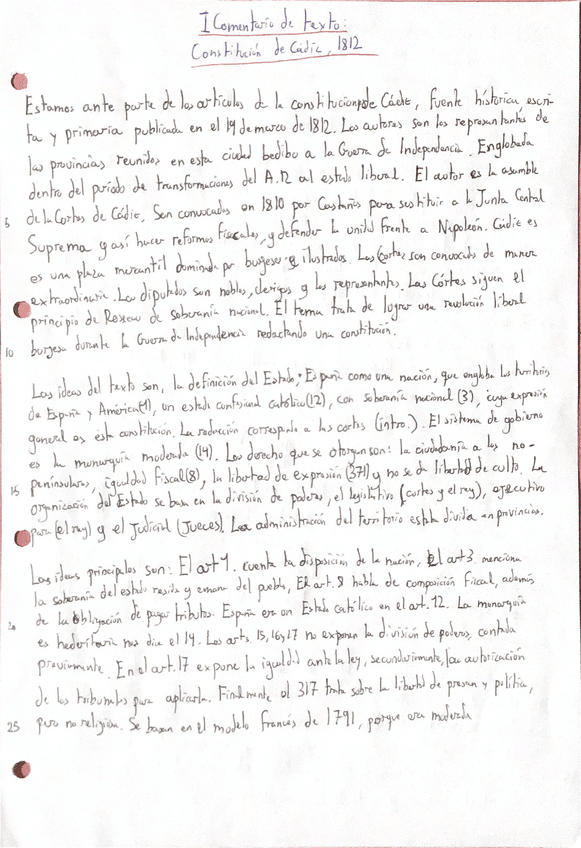 I Comentario de texto:
Constitución de Cádiz, 1812
Estamos ante parte de los artículos de la constitucion de Cádiz, fuente histórica, escri-
ta y primaria publicada en el 19 de marzo de 1812. Los autores son los representantes de
las provincias reunidos en esta ciudad debido a la Guerra de Independencia. Englobada
dentro del período de transformaciones del A.R al estado liberal. El autor es la asamble
5 de la Cortes de Cádiz. Son convocadas en 1810 por Castaños para sustituir a la Junta Central
Suprema y así hacer reformas fiscales, y defender la unidad frente a Napoleón. Cádiz es
es una plaza mercantil dominada por burgeses e ilustrados. Las Cortes son convocadas de manera
extraordinaria. Los diputados son nobles, clerigos y los representantes. Las Córtes siguen el
principio de de soberanía nacional. El tema trata de lograr una revolución liberal
10 burgesa durante la Guerra de Independencia redactando una constitución.
Las ideas del texto son, la definición del Estado; España como una nación, que engloba los territorios
de España y América(1), un estado confesional católico(12), con soberanía nacional (3), cuya expresión
general es esta constitución. La redacción corresponde a las cortes (intro.). El sistema de gobierno
es la monarquía moderada (14). Los derecho que se otorgan son: la ciudadanía a los no-
15 peninsulares, igualdad fiscal(8), la libertad de expresión (371) y no se da libertad de culto. La
organización del Estado se basa en la división de poderes, el legislativo (cortes y el rey), ejecutivo
para (el rey) y el Judicial (Jueces). La administración del territorio está divida en provincias.
Las ideas principales son: El art 1. cuenta la disposición de la nación, el art 3. menciona
la soberanía del estado resida y emana del pueblo, El art. 8 habla de composición fiscal, además
20 de la obligación de pagar tributos. España era un Estado católico en el art. 12. La monarquía
es hederitaria nos dice el 14. Los arts, 15, 16 y 17 no exponen la división de poderes, contada
previamente. En el art. 17 expone la igualdad ante la ley, secundariamente, la autorización
de los tribunales para aplicarla. Finalmente el 317 trata sobre la libertad de prensa y política,
25 pero no religiosa. Se basan en el modelo francés de 1791, porque era moderada